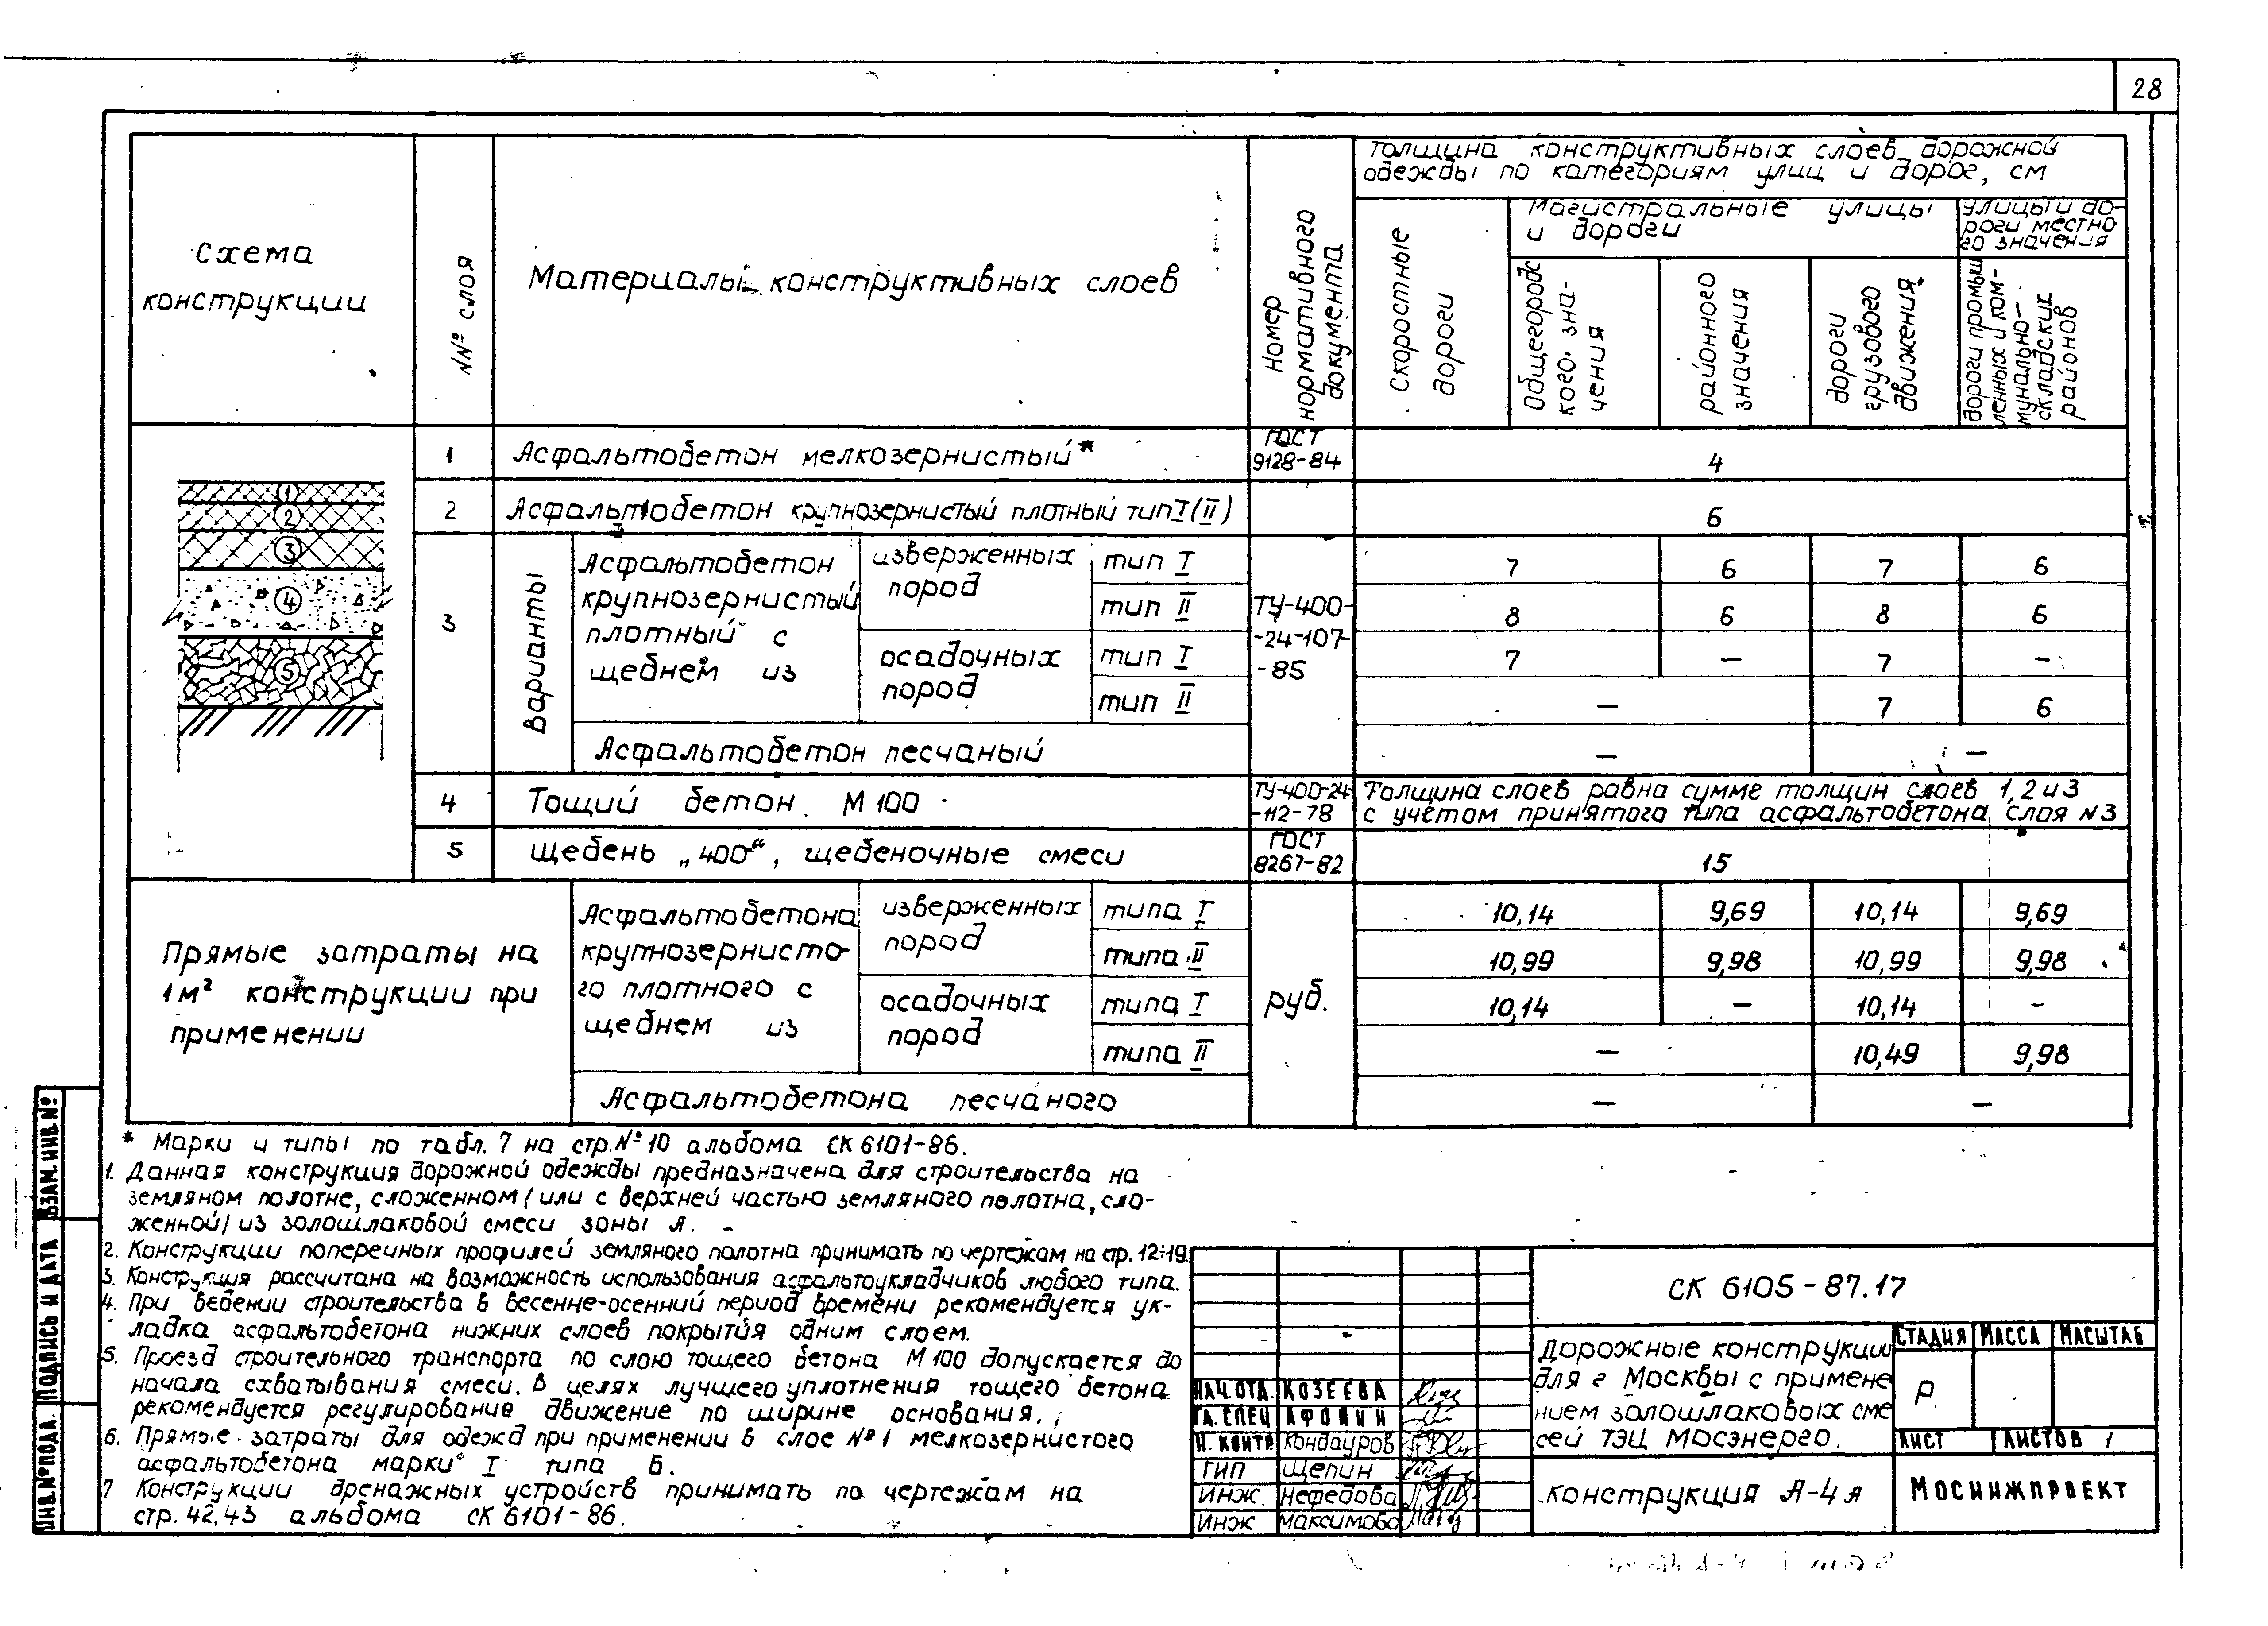 28
Схема
конструкции
№№ слоя
Материалы конструктивных слоев
Номер
нормативного
документа
Толщина конструктивных слоев дорожной
одежды по категориям улиц и дорог, см
Скоростные
дороги
Магистральные улицы
и дороги
Улицы и до-
роги местно
го значения
Общегородс
кого зна-
чения
районного
значения
дороги
грузового
движения
дороги промыш
ленных и ком-
мунально-
складских
районов
1 Асфальтобетон мелкозернистый* ГОСТ
9128-84 4
2 Асфальтобетон крупнозернистый плотный тип I (II) 6
3 Варианты
Асфальтобетон
крупнозернистый
плотный с
щебнем из
изверженных
пород
осадочных
пород
ТУ-400-
-24-107-
-85
тип I 7 6 7 6
тип II 8 6 8 6
тип I 7 – 7 –
тип II – 7 6
Асфальтобетон песчаный – –
4 Тощий бетон М 100 ТУ-400-24-
-112-78
Толщина слоев равна сумме толщин слоев 1,2 и 3
с учетом принятого типа асфальтобетона слоя №3
5 Щебень „400“, щебеночные смеси ГОСТ
8267-82 15
1
2
3
4
5
Прямые затраты на
1м² конструкции при
применении
Асфальтобетона
крупнозернисто-
го плотного с
щебнем из
изверженных
пород
осадочных
пород
руб.
типа I 10,14 9,69 10,14 9,69
типа II 10,99 9,98 10,99 9,98
типа I 10,14 – 10,14 –
типа II – 10,49 9,98
Асфальтобетона песчаного – –
* Марки и типы по табл. 7 на стр. № 10 альбома СК 6101-86.
1. Данная конструкция дорожной одежды предназначена для строительства на
земляном полотне, сложенном (или с верхней частью земляного полотна, сло-
женной) из золошлаковой смеси зоны А.
2. Конструкции поперечных профилей земляного полотна принимать по чертежам на стр. 12÷19.
3. Конструкция рассчитана на возможность использования асфальтоукладчиков любого типа.
4. При ведении строительства в весенне-осенний период времени рекомендуется ук-
ладка асфальтобетона нижних слоев покрытия одним слоем.
5. Проезд строительного транспорта по слою тощего бетона М 100 допускается до
начала схватывания смеси. В целях лучшего уплотнения тощего бетона
рекомендуется регулирование движение по ширине основания.
6. Прямые затраты для одежд при применении в слое № 1 мелкозернистого
асфальтобетона марки I типа Б.
7 Конструкции дренажных устройств принимать по чертежам на
стр. 42, 43 альбома СК 6101-86.
ВЗАМ. ИНВ №
ПОДПИСЬ И ДАТА
ИНВ. № ПОДЛ.
НАЧ. ОТД. КОЗЕЕВА
ГЛ. СПЕЦ АФОНИН
Н. КОНТР. Кондауров
ГИП Щепин
ИНЖ. Нефедова
ИНЖ Максимова
СК 6105-87.17
Дорожные конструкции
для г Москвы с примене
нием золошлаковых сме
сей ТЭЦ Мосэнерго.
СТАДИЯ МАССА МАСШТАБ
Р
ЛИСТ ЛИСТОВ 1
конструкция А-4я
МОСИНЖПРОЕКТ